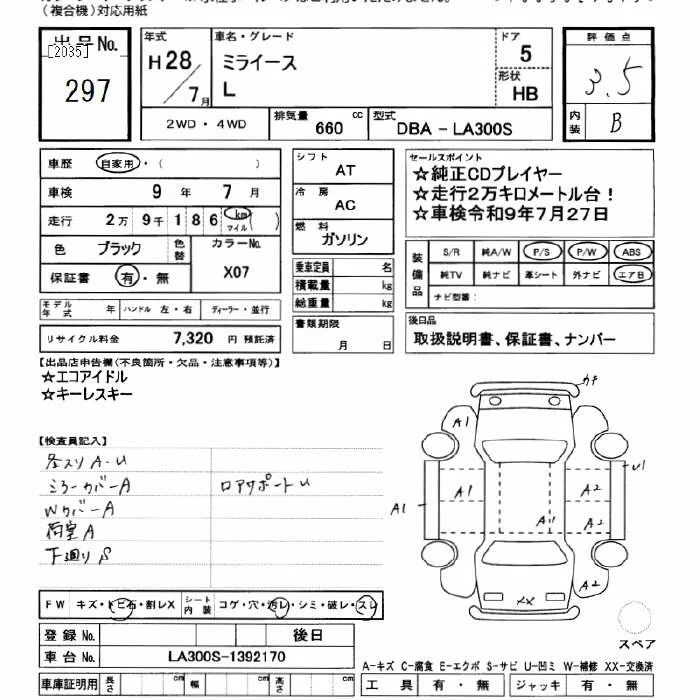 （複合機）対応用紙
出品No.
[2035]
297
年式
H28
/7月
車名・グレード
ミライース
L
ドア
5
形状
HB
2WD・4WD
排気量 660 cc
型式 DBA - LA300S
評価点
3.5
内装 B
車歴 自家用・（ ）
車検 9年 7月
走行 2万9千186 km マイル（ ）
色 ブラック 色替
カラーNo. X07
保証書 有・無
モデル年式 年 ハンドル 左・右 ディーラー・並行
リサイクル料金 7,320 円 預託済
シフト AT
冷房 AC
燃料 ガソリン
乗車定員 名
積載量 kg
総重量 kg
書類期限
月 日
セールスポイント
☆純正CDプレイヤー
☆走行2万キロメートル台！
☆車検令和9年7月27日
装備品
S/R 純A/W P/S P/W ABS
純TV 純ナビ 革シート 外ナビ エアB
ナビ型番：
後日品
取扱説明書、保証書、ナンバー
【出品店申告欄(不良箇所・欠品・注意事項等)】
☆エコアイドル
☆キーレスキー
【検査員記入】
各スリ A-U
ミラーカバーA
ロアサポートU
WカバーA
荷室A
下廻りS
ガチ
A1
U1
A1
A2
A1
A1
A2
A2
XX
スペア
FW キズ・トビ石・割レX
シート内装 コゲ・穴・汚レ・シミ・破レ・スレ
登録No. 後日
車台No. LA300S-1392170
車庫証明用 長さ cm 幅 cm 高さ cm
A-キズ C-腐食 E-エクボ S-サビ U-凹ミ W-補修 XX-交換済
工具 有・無 ジャッキ 有・無